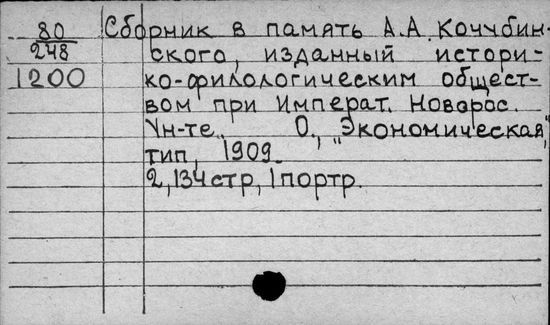 80 Сборник в память А.А. Кочубин-
248 ского, изданный истори-
1200 ко-филологическим общест-
вом при Императ. Новорос.
Ун-те. О., "Экономическая"
тип, 1909.
2,134стр, 1портр.